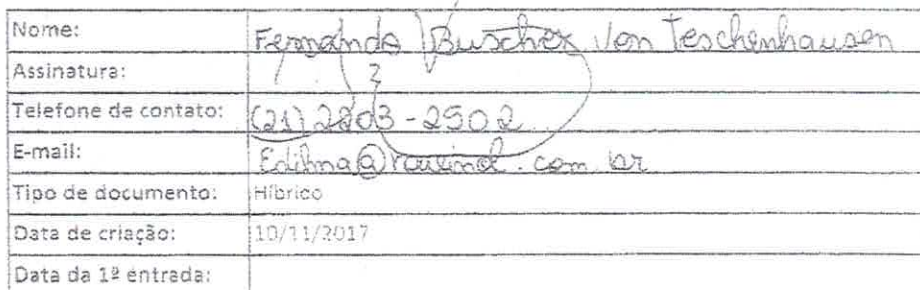 Nome: Fernando Buscher Von Teschenhausen
Assinatura:
Telefone de contato: (21) 2203-2502
E-mail: @ .com.br
Tipo de documento: Híbrico
Data de criação: 10/11/2017
Data da 1ª entrada: